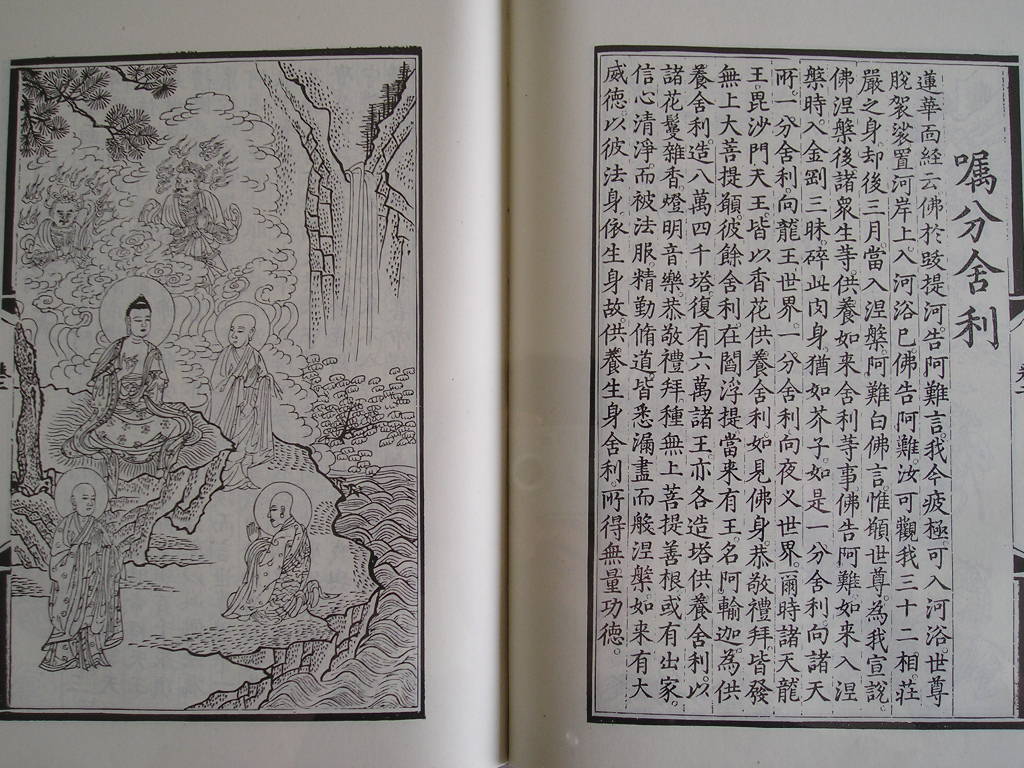 嘱分舍利
蓮華面經云佛於跋提河告阿難言我今疲極可入河浴世尊
脫袈裟置河岸上入河浴已佛告阿難汝可觀我三十二相莊
嚴之身却後三月當入涅槃阿難白佛言惟願世尊為我宣說
佛涅槃後諸衆生等供養如來舍利等事佛告阿難如來入涅
槃時入金剛三昧碎此肉身猶如芥子如是一分舍利向諸天
所一分舍利向龍王世界一分舍利向夜叉世界爾時諸天龍
王毘沙門天王皆以香花供養舍利如見佛身恭敬禮拜皆發
無上大菩提願彼餘舍利在閻浮提當來有王名阿輸迦為供
養舍利造八萬四千塔復有六萬諸王亦各造塔供養舍利以
諸花鬘雜香燈明音樂恭敬禮拜種無上菩提善根或有出家
信心清淨而被法服精勤脩道皆悉漏盡而般涅槃如來有大
威德以彼法身依生身故供養生身舍利所得無量功德